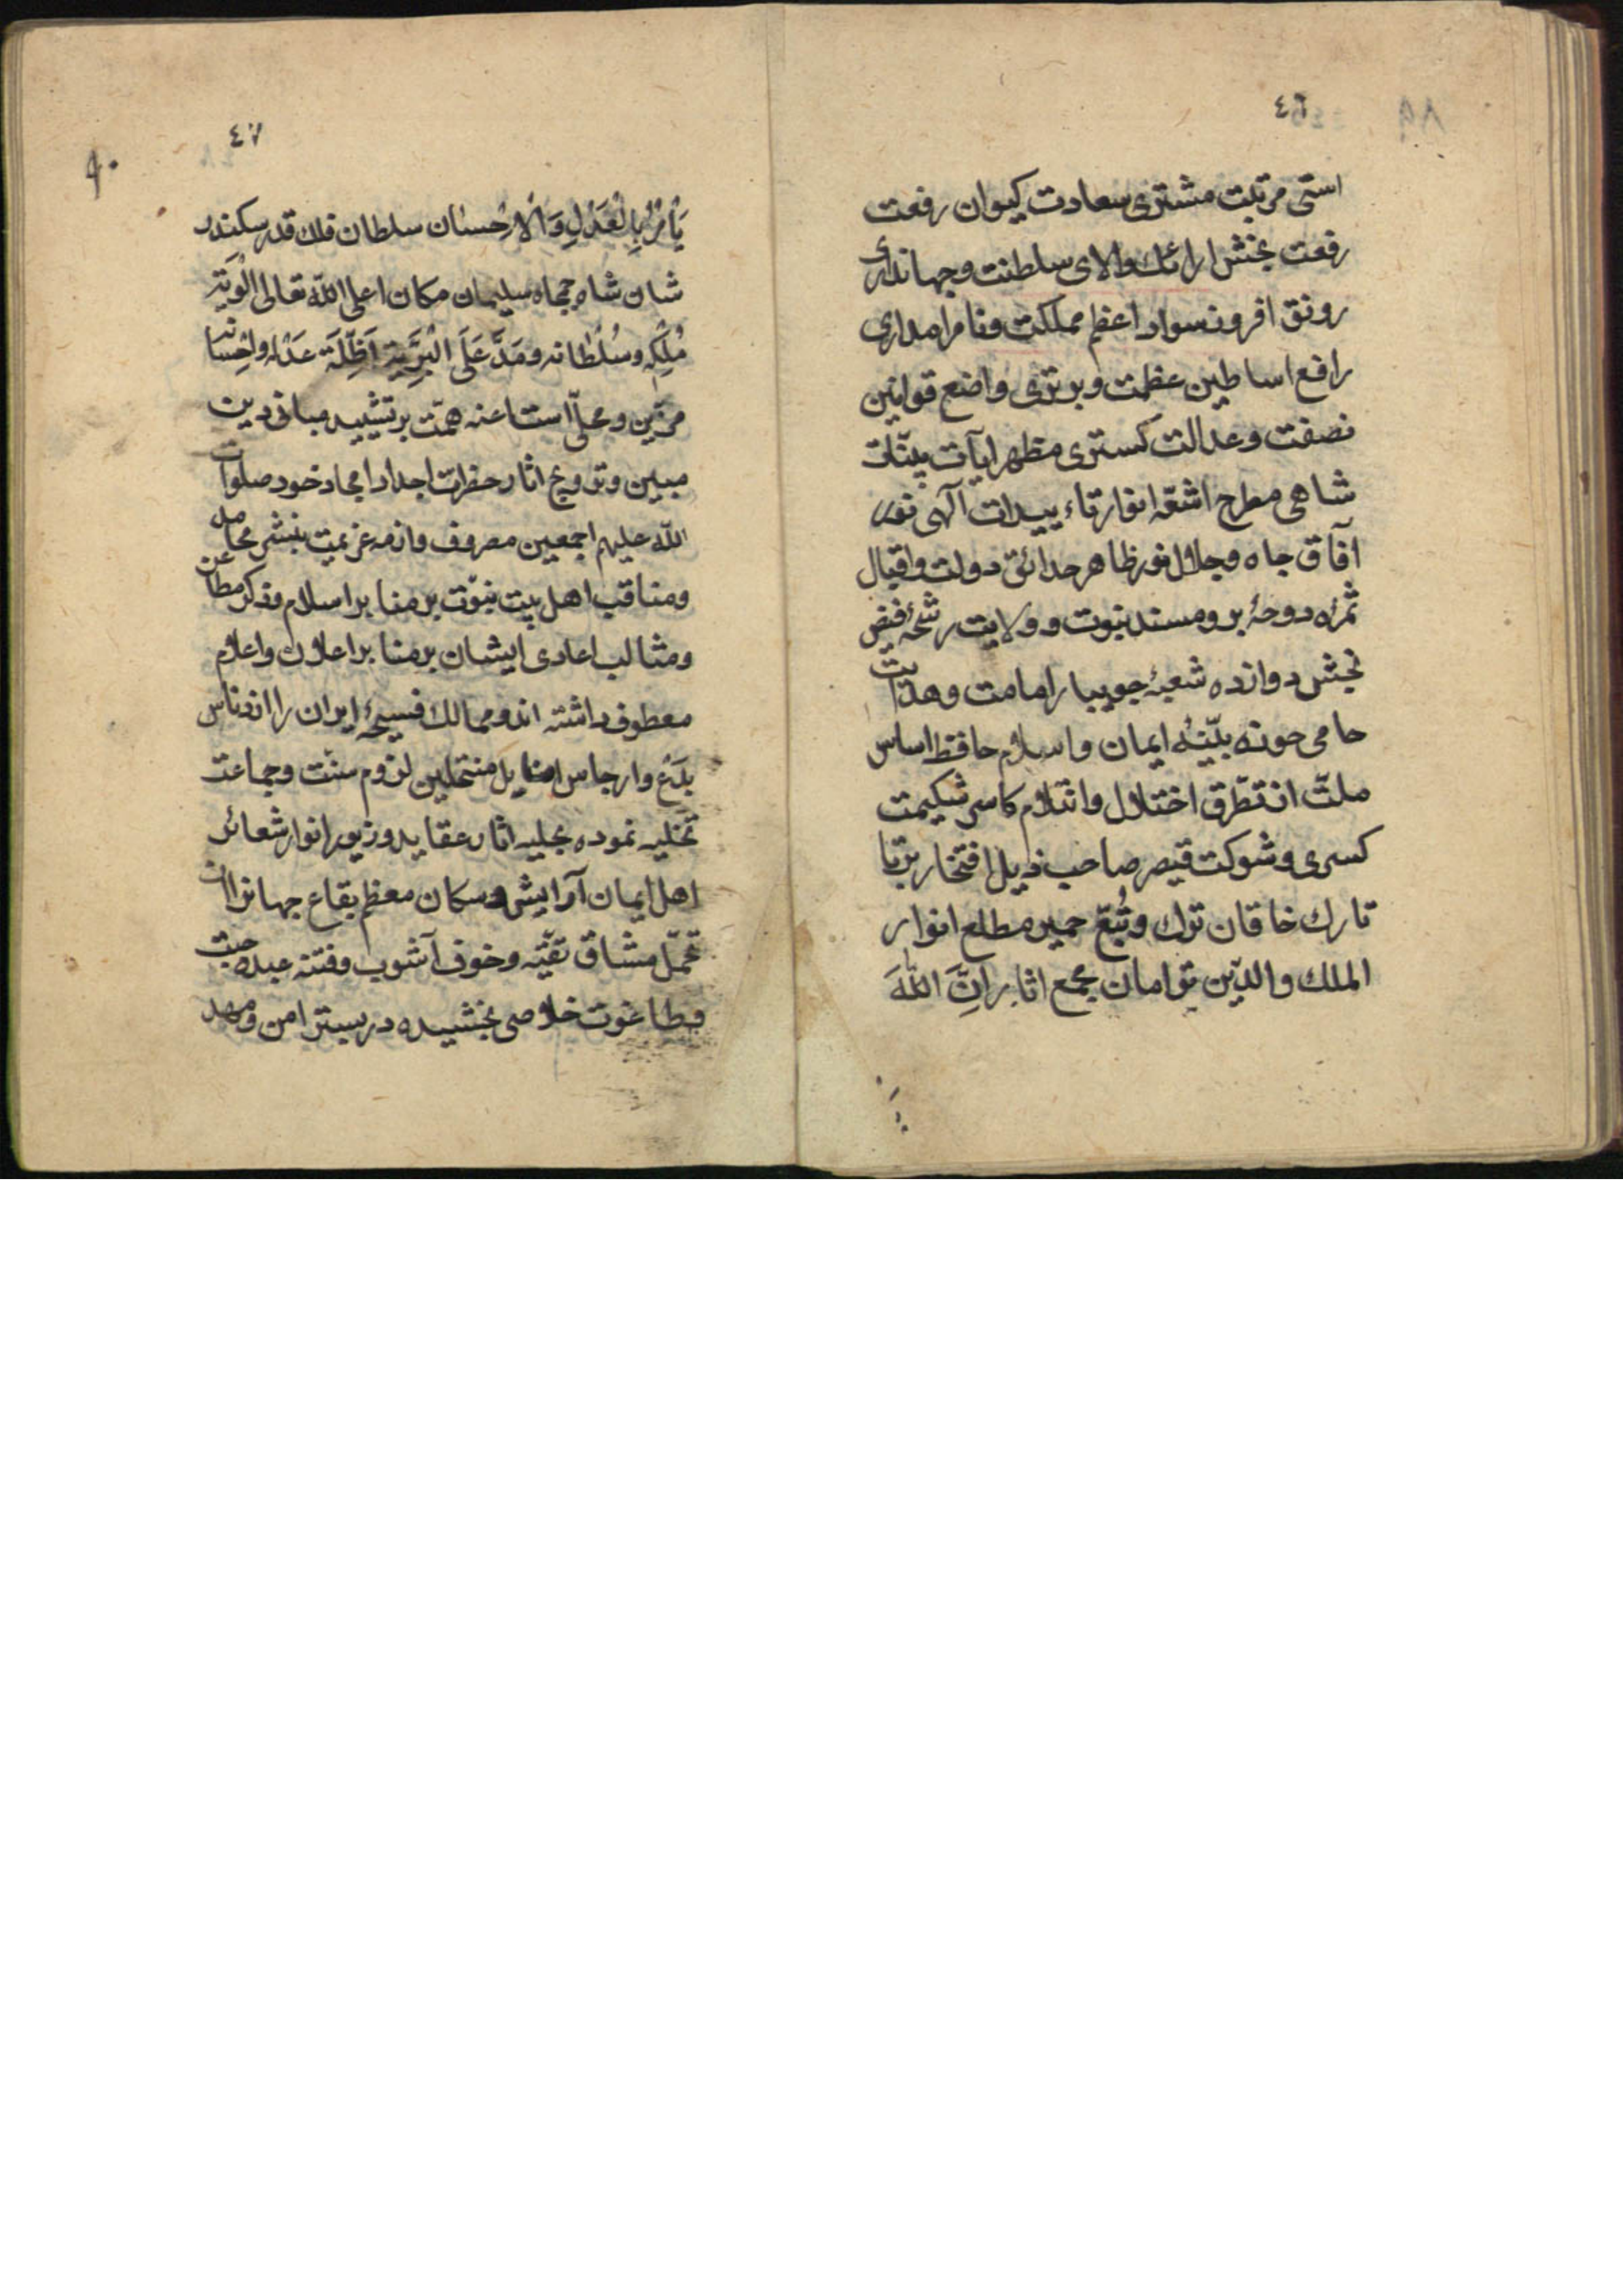 ٤٦
استی مرتبت مشتری سعادت کیوان رفعت
رفعت بخش ارائک والای سلطنت وجهانداری
رونق افروز سواد اعظم مملکت ونامداری
رافع اساطین عظمت وبرتری واضع قوانین
نصفت وعدالت کستری مظهر ایآت بینّات
شاهی مطرح اشعّه انوار تاءییدات آلهی نور
آفاق جاه وجلال نور ظاهر حدائق دولت واقبال
ثمرۀ دوحۀ برومند نبوت وولایت رشحۀ فیض
بخش دوازده شعبۀ جویبار امامت وهدایت
حامی حوزه بیّنۀ ایمان واسلام حافظ اساس
ملتّ از تطرّق اختلال وانثلام کاسر شکیمت
کسری وشوکت قیصر صاحب ذیل افتخار برتا
تارک خاقان ترک وتُبّع حمیر مطلع انوار
الملك والدّین توامان مجمع اثار اِنَّ اللّٰهَ
٤٧
۹۰
یَأمُرُ بِالْعَدْلِ وَالْاِحْسٰان سلطان فلك قدر سکندر
شان شاه جمجاه سلیمان مکان اعلی اللّه تعالی الْوِیَتَ
مُلْکِه وسُلْطانه ومَدَّ عَلَی الْبَرِّیَة اَظِّلَة عَدْله واِحْسانه
مزیّن ومحلّی است اعنه همّت بر تشیید مبانی دین
مبین وترویج اثار حضرات اجداد امجاد خود صلوات
اللّه علیهم اجمعین مصروف وازمه عزیمت بنشر محامد
ومناقب اهل بیت نبوّت بر منابر اسلام وذکر مطاعن
ومثالب اعادی ایشان بر منابر اعلان واعلام
معطوف داشته اند وممالك فسیحۀ ایران را از ادناس
بدَع وارجاس اضالیل منتحلین لزوم سنّت وجماعت
تخلیه نموده بحلیه اثار عقاید وزیور انوار شعائر
اهل ایمان آرایش وسکان معظم بقاع جهانرا از
تحمّل مشاقّ تقیّه وخوف آشوب وفتنه عبده جبت
وطاغوت خلاصی بخشیده در بستر امن ومهد